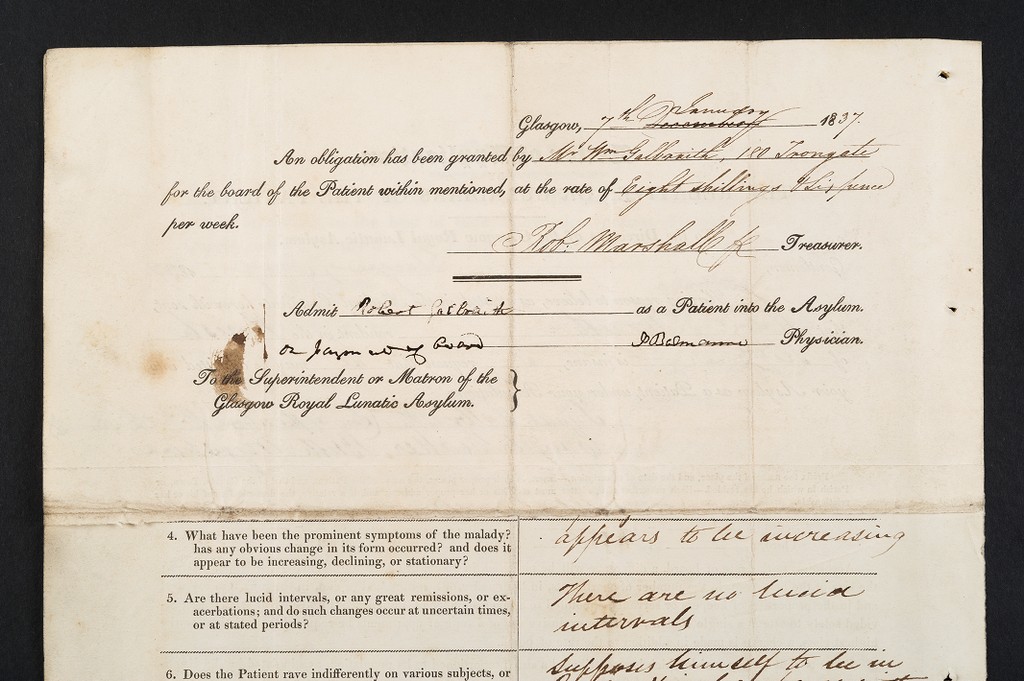 Glasgow, 7th January Decembeoff 1837.
An obligation has been granted by Mr Wm Galbraith, 180 Trongate
for the board of the Patient within mentioned, at the rate of Eight shillings & Sixpence
per week.
Rob: Marshall Treasurer.
Admit Robert Galbraith as a Patient into the Asylum.
on payment of board Physician.
To the Superintendent or Matron of the
Glasgow Royal Lunatic Asylum.
4. What have been the prominent symptoms of the malady?
has any obvious change in its form occurred? and does it
appear to be increasing, declining, or stationary?
appears to be increasing
5. Are there lucid intervals, or any great remissions, or ex-
acerbations; and do such changes occur at uncertain times,
or at stated periods?
There are no lucid
intervals
6. Does the Patient rave indifferently on various subjects, or
supposes himself to be in